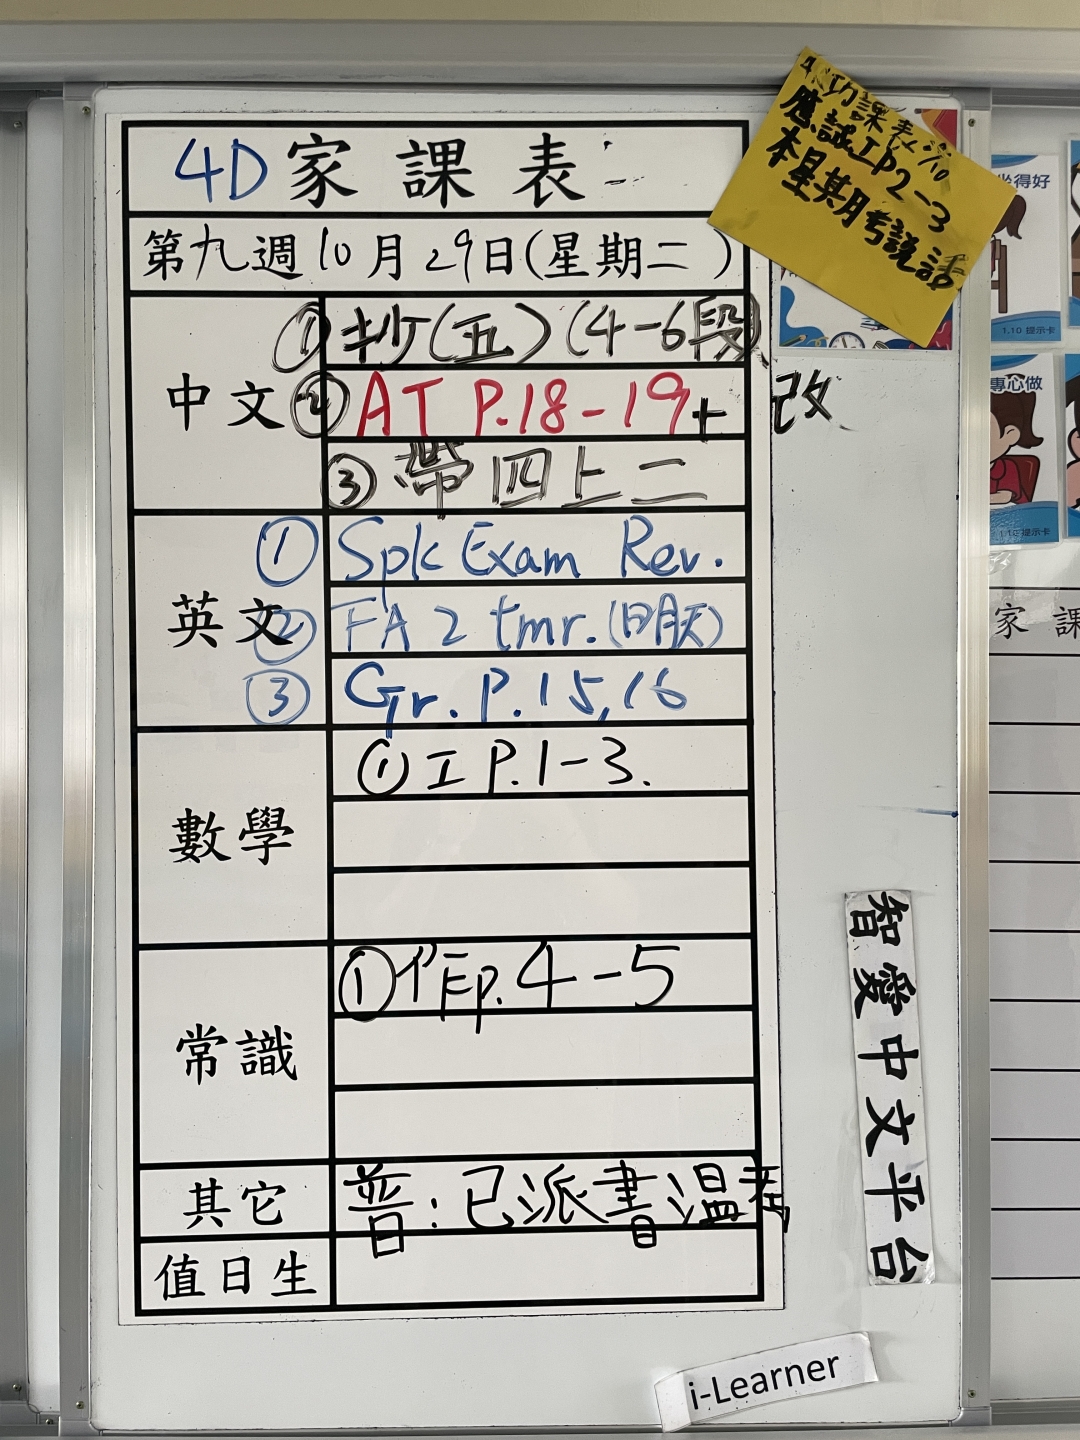 4D家課表
第九週10月29日(星期二)
中文
①抄(五)(4-6段)
②AT P.18-19+改
③帶四上二
英文
①Spk Exam Rev.
②FA 2 tmr.(明天)
③Gr. P.15,16
數學
①工P.1-3.
常識
①作P.4-5
其它
普:已派書溫習
值日生
功課表
應試工P2-3
本星期考說話
坐得好
1.10 提示卡
專心做
提示卡
家 課
智愛中文平台
i-Learner